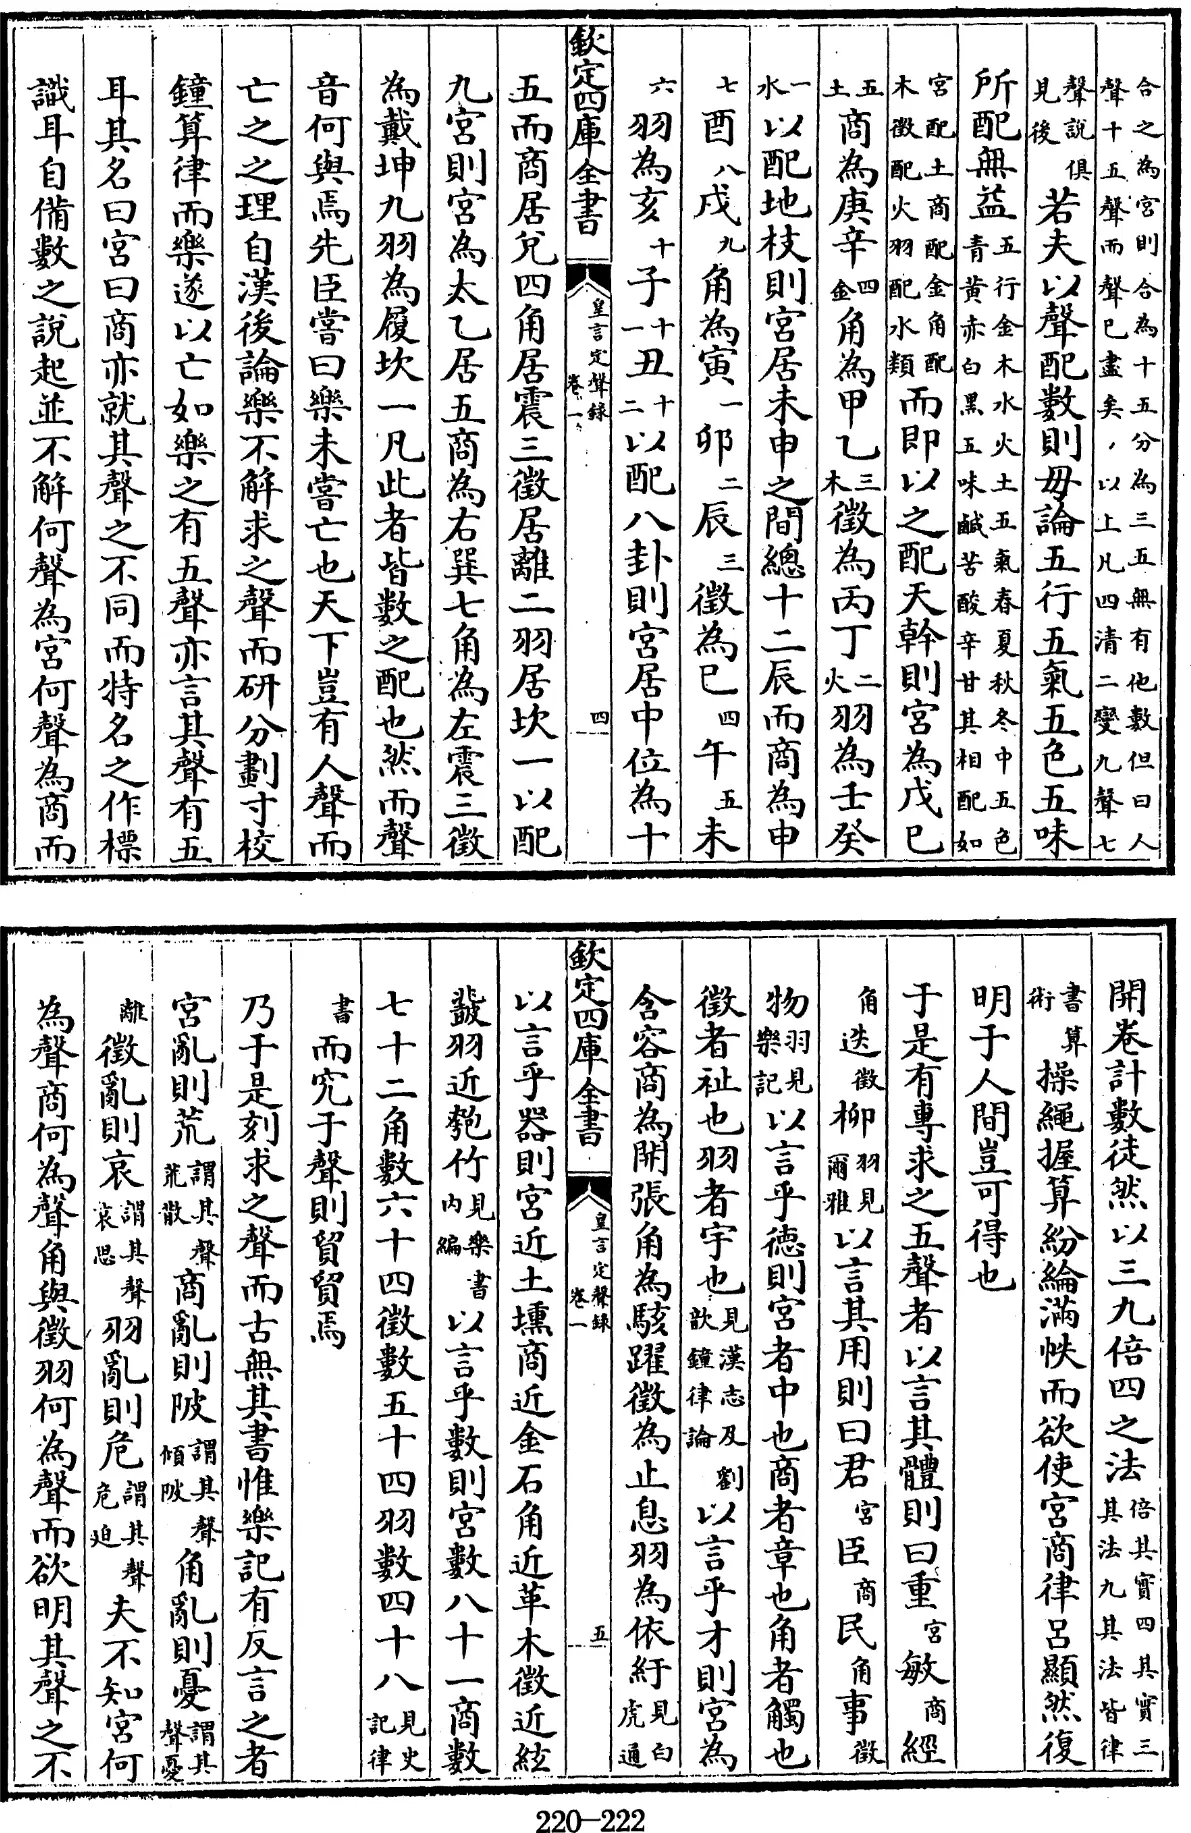 合之為宮則合為十五分為三五無有他數但曰人
聲十五聲而聲已盡矣以上凡四清二變九聲七
聲說俱見後若夫以聲配數則毋論五行五氣五色五味
所配無益五行金木水火土五氣春夏秋冬中五色青黃赤白黑五味鹹苦酸辛甘其相配如
宮配土商配金角配木徵配火羽配水類而即以之配天幹則宮為戊巳
五土商為庚辛四金角為甲乙三木徵為丙丁二火羽為壬癸
一水以配地枝則宮居未申之間總十二辰而商為申
七酉八戌九角為寅一卯二辰三徵為巳四午五未
六羽為亥十子十一丑十二以配八卦則宮居中位為十
欽定四庫全書 皇言定聲錄 卷一 四
五而商居兌四角居震三徵居離二羽居坎一以配
九宮則宮為太乙居五商為右巽七角為左震三徵
為戴坤九羽為履坎一凡此者皆數之配也然而聲
音何與焉先臣嘗曰樂未嘗亡也天下豈有人聲而
亡之之理自漢後論樂不解求之聲而研分劃寸校
鐘算律而樂遂以亡如樂之有五聲亦言其聲有五
耳其名曰宮曰商亦就其聲之不同而特名之作標
識耳自備數之說起並不解何聲為宮何聲為商而
開卷計數徒然以三九倍四之法倍其實四其實三其法九其法皆律
書算術操繩握算紛綸滿帙而欲使宮商律呂顯然復
明于人間豈可得也
于是有專求之五聲者以言其體則曰重宮敏商經
角迭徵柳羽見爾雅以言其用則曰君宮臣商民角事徵
物羽見樂記以言乎德則宮者中也商者章也角者觸也
徵者祉也羽者宇也見漢志及劉歆鐘律論以言乎才則宮為
含容商為開張角為駭躍徵為止息羽為依紆見白虎通
欽定四庫全書 皇言定聲錄 卷一 五
以言乎器則宮近土壎商近金石角近革木徵近絃
鼗羽近匏竹見樂書內編以言乎數則宮數八十一商數
七十二角數六十四徵數五十四羽數四十八見史記律
書而究于聲則貿貿焉
乃于是刻求之聲而古無其書惟樂記有反言之者
宮亂則荒謂其聲荒散商亂則陂謂其聲傾陂角亂則憂謂其聲憂
離徵亂則哀謂其聲哀思羽亂則危謂其聲危迫夫不知宮何
為聲商何為聲角與徵羽何為聲而欲明其聲之不
220—222